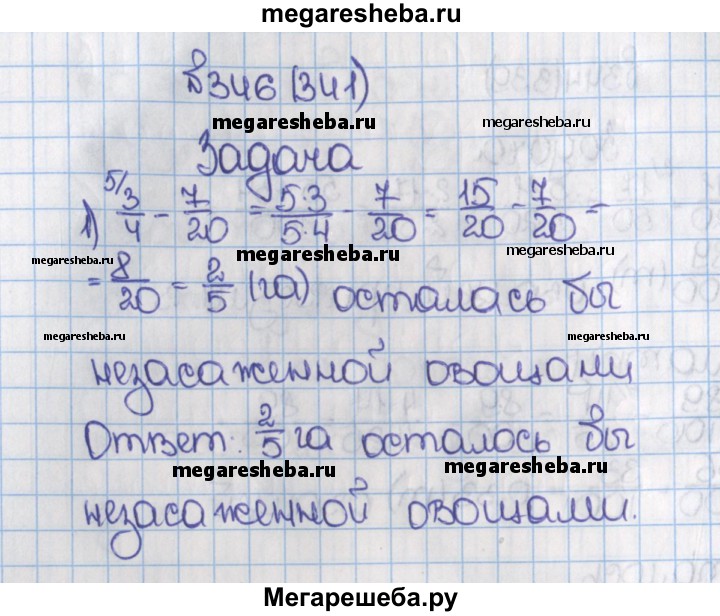 megaresheba.ru
№346 (341)
megaresheba.ru megaresheba.ru
Задача
1) 5/ 3/4 - 7/20 = 5·3/5·4 - 7/20 = 15/20 - 7/20 =
megaresheba.ru megaresheba.ru
= 8/20 = 2/5 (га) осталась бы
megaresheba.ru megaresheba.ru
незасаженной овощами
Ответ: 2/5 га осталось бы
megaresheba.ru megaresheba.ru
незасаженной овощами.
Мегарешеба.ру